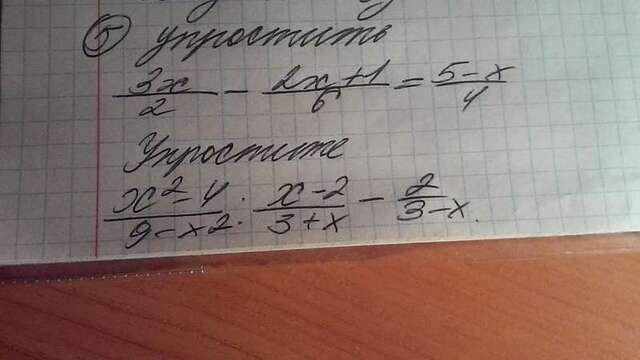 ⑤ упростить
3x/2 - 2x+1/6 = 5-x/4
Упростите
x²-4/9-x² : x-2/3+x - 2/3-x.